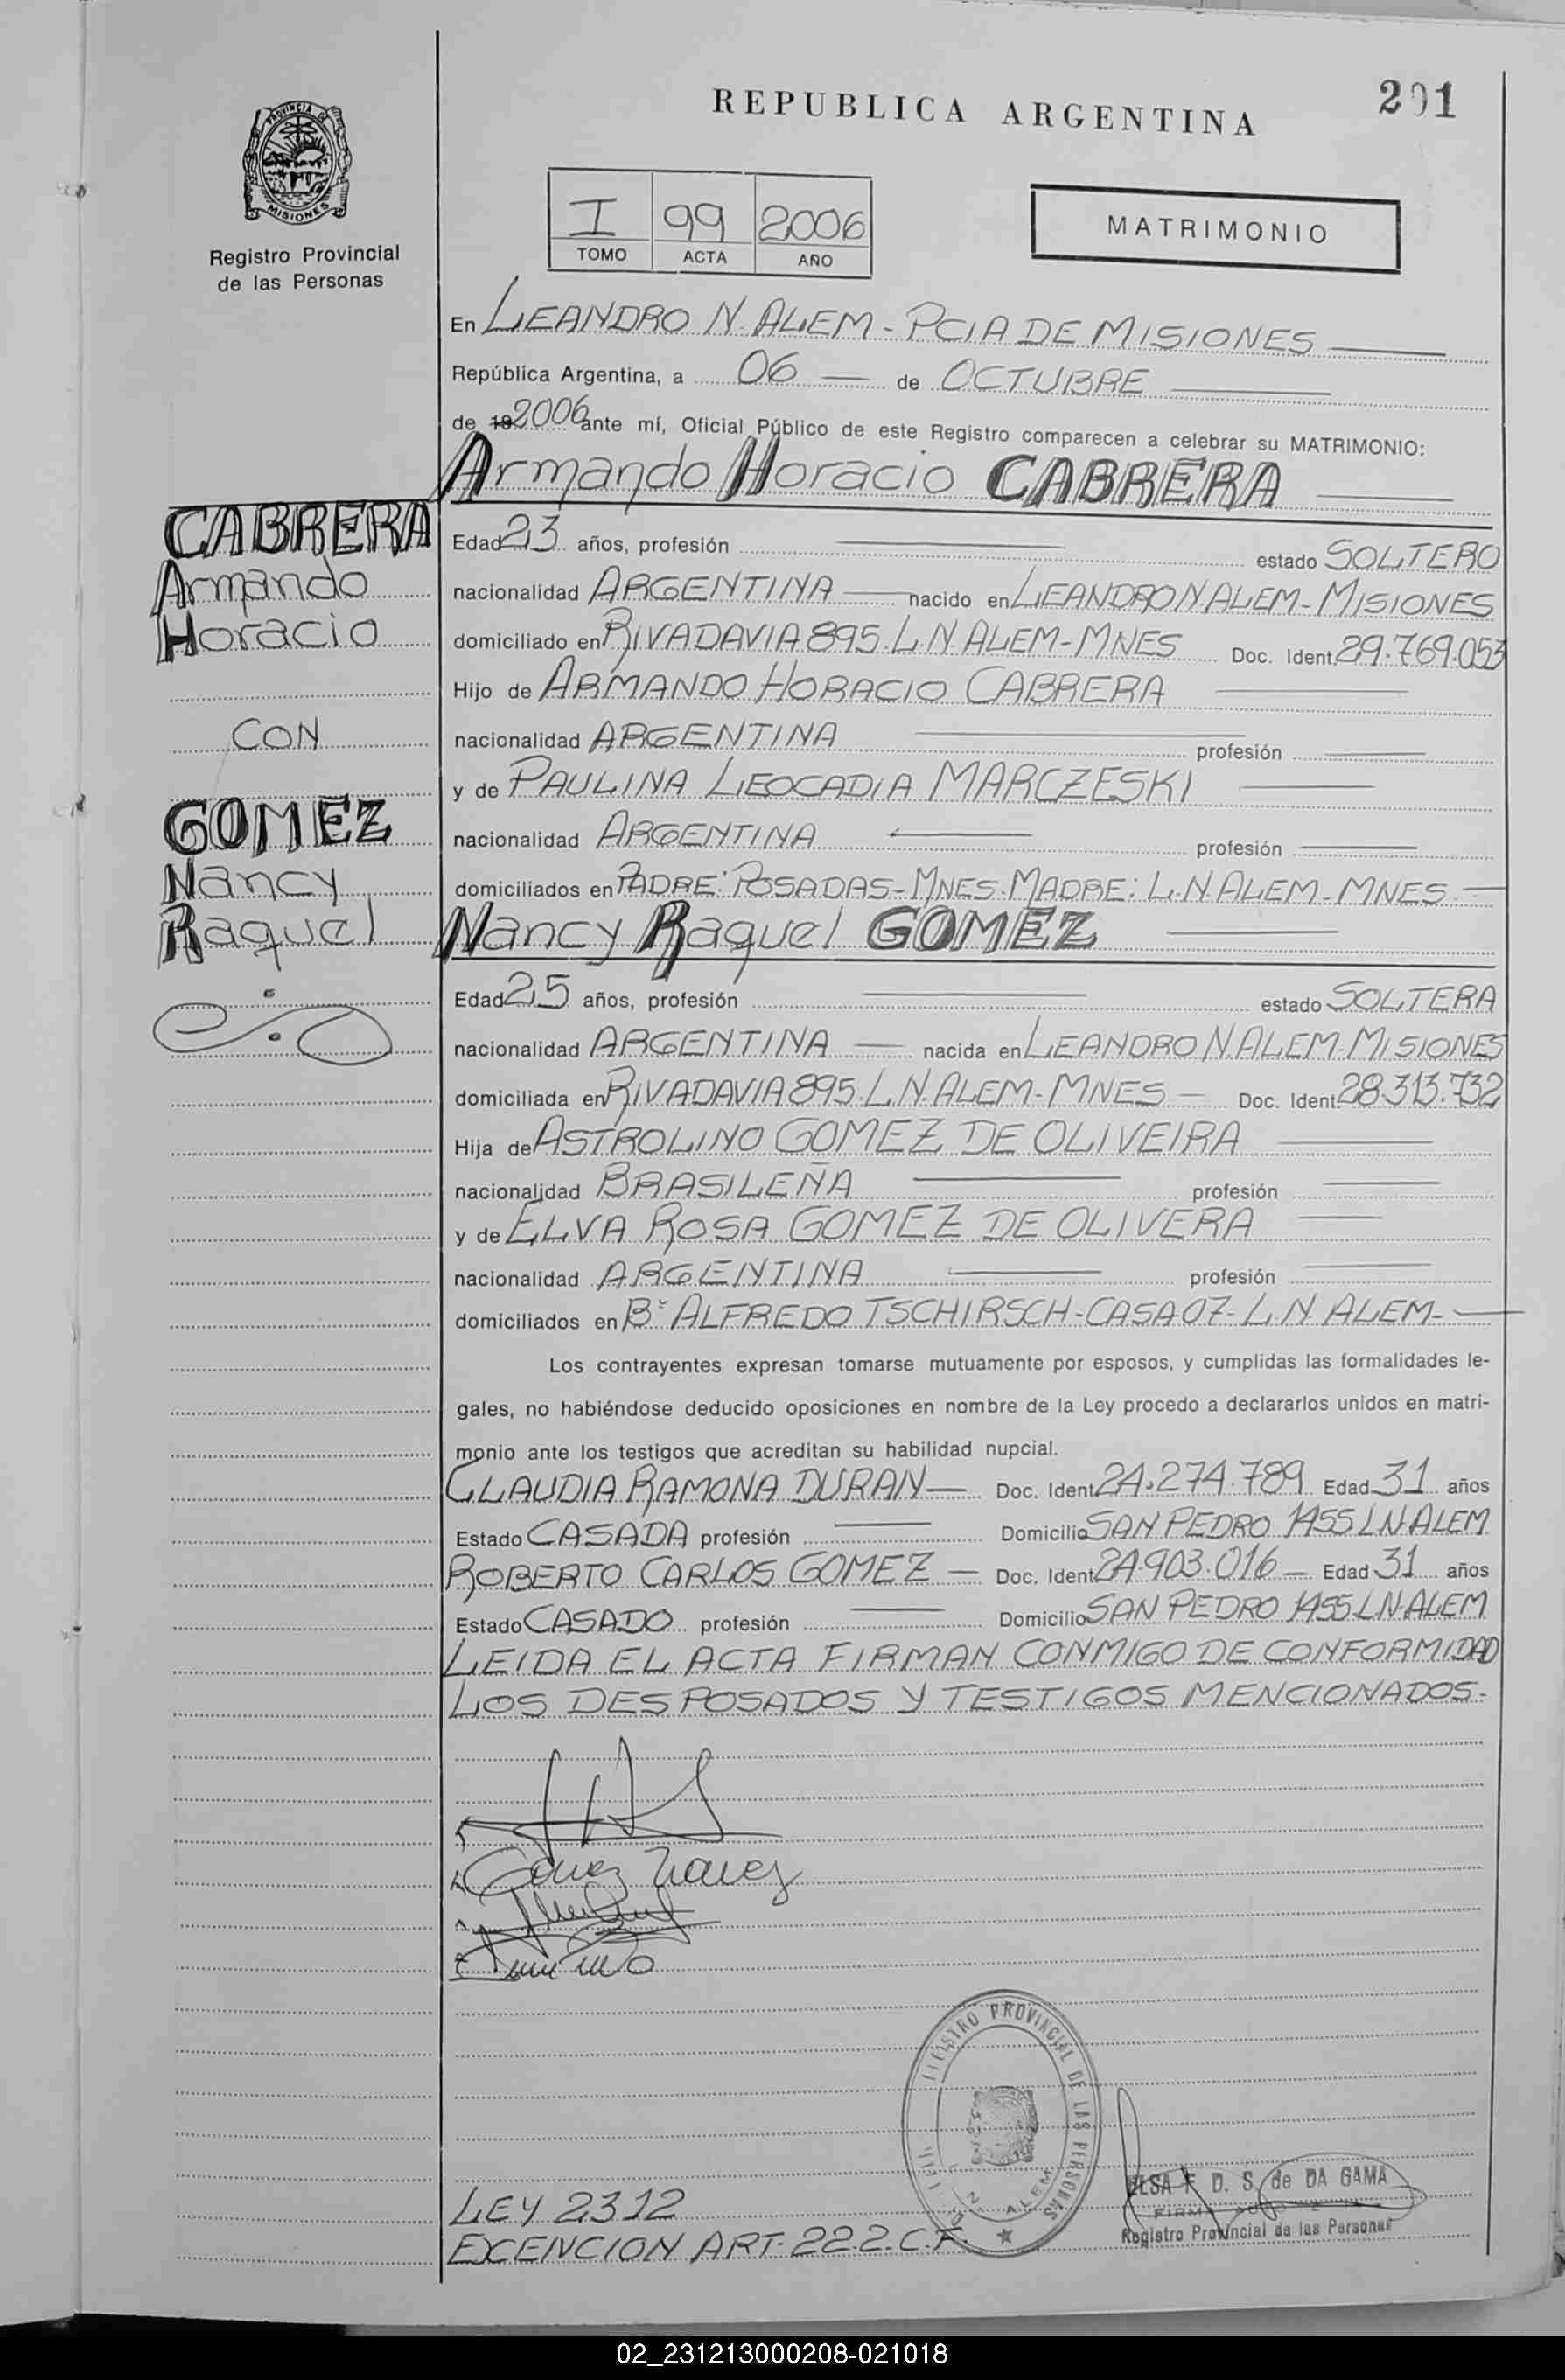 REPUBLICA ARGENTINA
201
PROVINCIA
MISIONES
Registro Provincial
de las Personas
I 99 2006
TOMO ACTA AÑO
MATRIMONIO
En LEANDRO N. ALEM - PCIA DE MISIONES
República Argentina, a 06 de OCTUBRE
de 19 2006 ante mí, Oficial Público de este Registro comparecen a celebrar su MATRIMONIO:
Armando Horacio CABRERA
CABRERA
Armando
Horacio
CON
GOMEZ
Nancy
Raquel
Edad 23 años, profesión estado SOLTERO
nacionalidad ARGENTINA nacido en LEANDRO N ALEM - MISIONES
domiciliado en RIVADAVIA 895. L.N. ALEM - MNES Doc. Ident. 29.769.053
Hijo de ARMANDO HORACIO CABRERA
nacionalidad ARGENTINA profesión
y de PAULINA LEOCADIA MARCZESKI
nacionalidad ARGENTINA profesión
domiciliados en PADRE: POSADAS - MNES. MADRE: L.N. ALEM - MNES.
Nancy Raquel GOMEZ
Edad 25 años, profesión estado SOLTERA
nacionalidad ARGENTINA nacida en LEANDRO N. ALEM - MISIONES
domiciliada en RIVADAVIA 895. L.N. ALEM - MNES Doc. Ident. 28.313.732
Hija de ASTROLINO GOMEZ DE OLIVEIRA
nacionalidad BRASILEÑA profesión
y de ELVA ROSA GOMEZ DE OLIVERA
nacionalidad ARGENTINA profesión
domiciliados en Bº ALFREDO TSCHIRSCH - CASA 07 - L.N. ALEM -
Los contrayentes expresan tomarse mutuamente por esposos, y cumplidas las formalidades le-
gales, no habiéndose deducido oposiciones en nombre de la Ley procedo a declararlos unidos en matri-
monio ante los testigos que acreditan su habilidad nupcial.
CLAUDIA RAMONA DURAN Doc. Ident. 24.274.789 Edad 31 años
Estado CASADA profesión Domicilio SAN PEDRO 1455 L N ALEM
ROBERTO CARLOS GOMEZ Doc. Ident. 24.903.016 Edad 31 años
Estado CASADO profesión Domicilio SAN PEDRO 1455 L N ALEM
LEIDA EL ACTA FIRMAN CONMIGO DE CONFORMIDAD
LOS DESPOSADOS Y TESTIGOS MENCIONADOS.
Gomez Nancy
PROVINCIAL DE LAS PERSONAS
N. ALEM
ELSA F. D. S. de DA GAMA
Registro Provincial de las Personas
LEY 2312
EXENCION ART. 222. C.F.
02_231213000208-021018